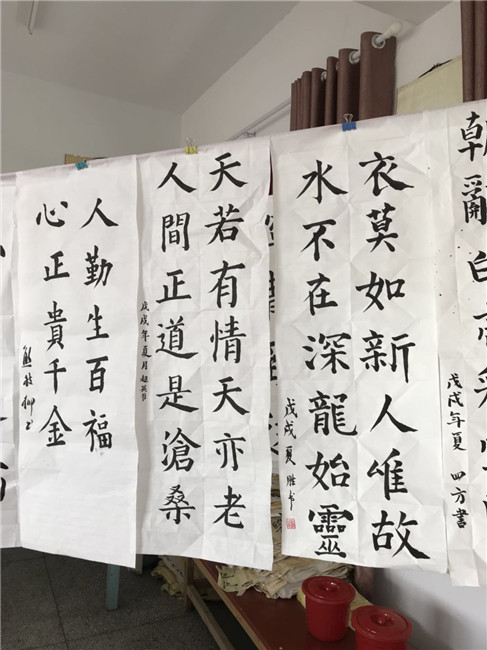 朝辭白帝彩
戊戌年夏 四方書
衣莫如新人惟故
水不在深龍始靈
戊戌夏
天若有情天亦老
人間正道是滄桑
戊戌年夏月
人勤生百福
心正貴千金